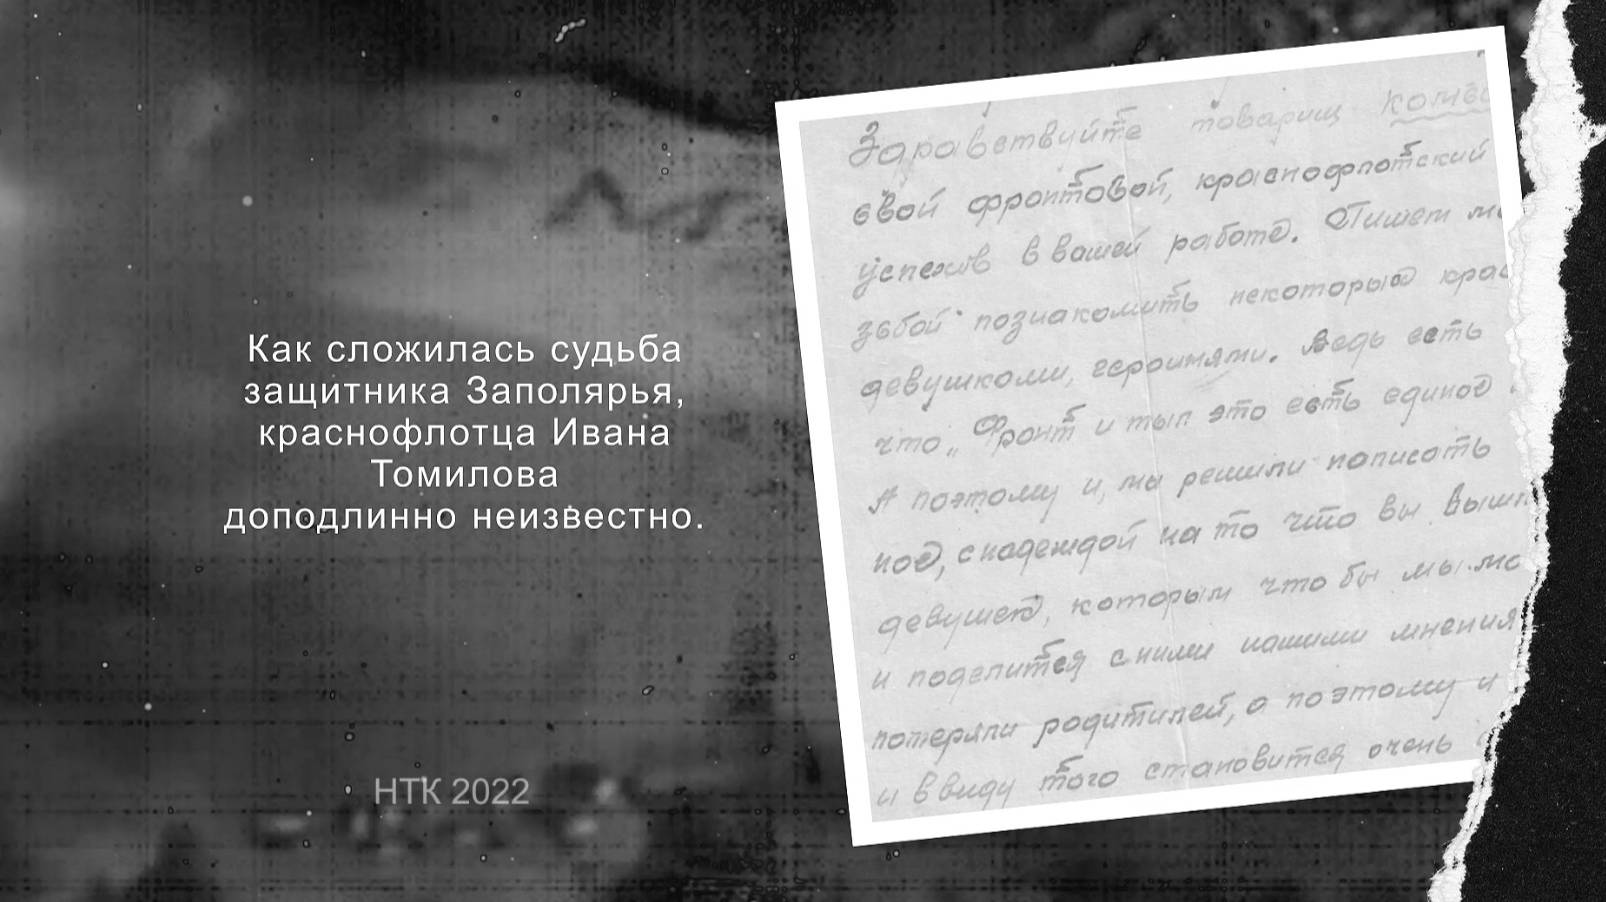 Как сложилась судьба
защитника Заполярья,
краснофлотца Ивана
Томилова
доподлинно неизвестно.
НТК 2022
Здравствуйте товарищ
свой фронтовой, краснофлотский
успехов в вашей работе. Пишет
познакомить некоторые
девушками, героинями. Ведь есть
что „Фронт и тыл это есть единое
А поэтому и, мы решили написать
ное, с надеждой на то что вы
девушек, которым что бы мы
и поделится с ними нашими мнения
потеряли родитилей, а поэтому и
и ввиду того становится очень